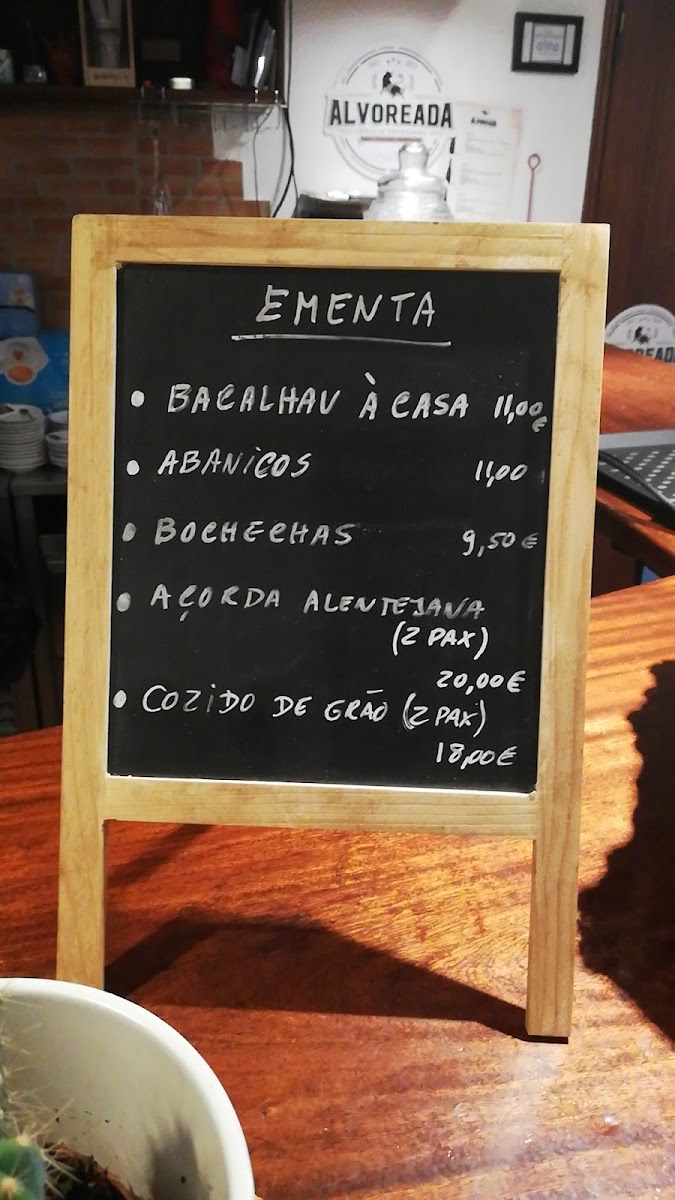 ALVOREADA
EMENTA
• BACALHAU À CASA 11,00€
• ABANICOS 11,00
• BOCHECHAS 9,50€
• AÇORDA ALENTEJANA
(2 PAX)
20,00€
• COZIDO DE GRÃO (2 PAX)
18,00€